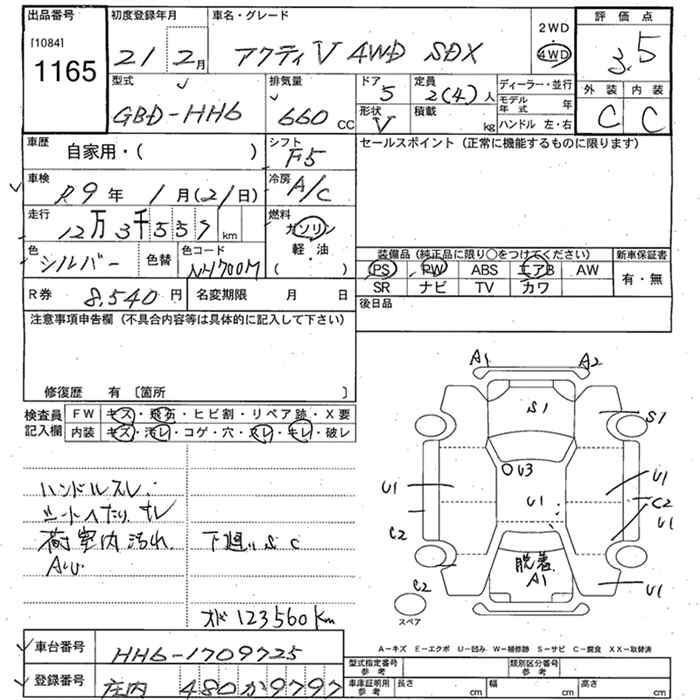 出品番号 初度登録年月 車名・グレード 2WD 4WD 評価点
[1084]
1165
21年 2月 アクティV 4WD SDX 3.5
型式 排気量 ドア 定員 ディーラー・並行 外装 内装
GBD-HH6 660 CC 5 2(4)人 モデル年式 年 C C
形状 積載 ハンドル 左・右
V kg
車歴 自家用・( ) シフト セールスポイント (正常に機能するものに限ります)
F5
車検 R9年 1月(21日) 冷房
A/C
走行 12万3千559km 燃料
ガソリン・軽油
( )
色 シルバー 色替 色コード NH700M
装備品 (純正品に限り○をつけてください) 新車保証書
PS PW ABS エアB AW 有・無
SR ナビ TV カワ
R券 8,540円 名変期限 月 日 後日品
注意事項申告欄 (不具合内容等は具体的に記入して下さい)
修復歴 有 〔箇所 〕
検査員記入欄 FW キズ・飛石・ヒビ割・リペア跡・X要
内装 キズ・汚レ・コゲ・穴・スレ・キレ・破レ
ハンドルスレ
シートヘたり、キレ
荷室内汚れ、 下廻りS C
オド 123560km
A1 A2
S1 S1
U3
U1 U1 U1
C2 C2 U1
脱着
A1
C2 U1
スペア
A-キズ E-エクボ U-凹み W-補修跡 S-サビ C-腐食 XX-取替済
車台番号 HH6-1709725 型式指定番号 参考 類別区分番号 参考
登録番号 庄内 480 か 9797 車庫証明用 参考 長さ cm 幅 cm 高さ cm